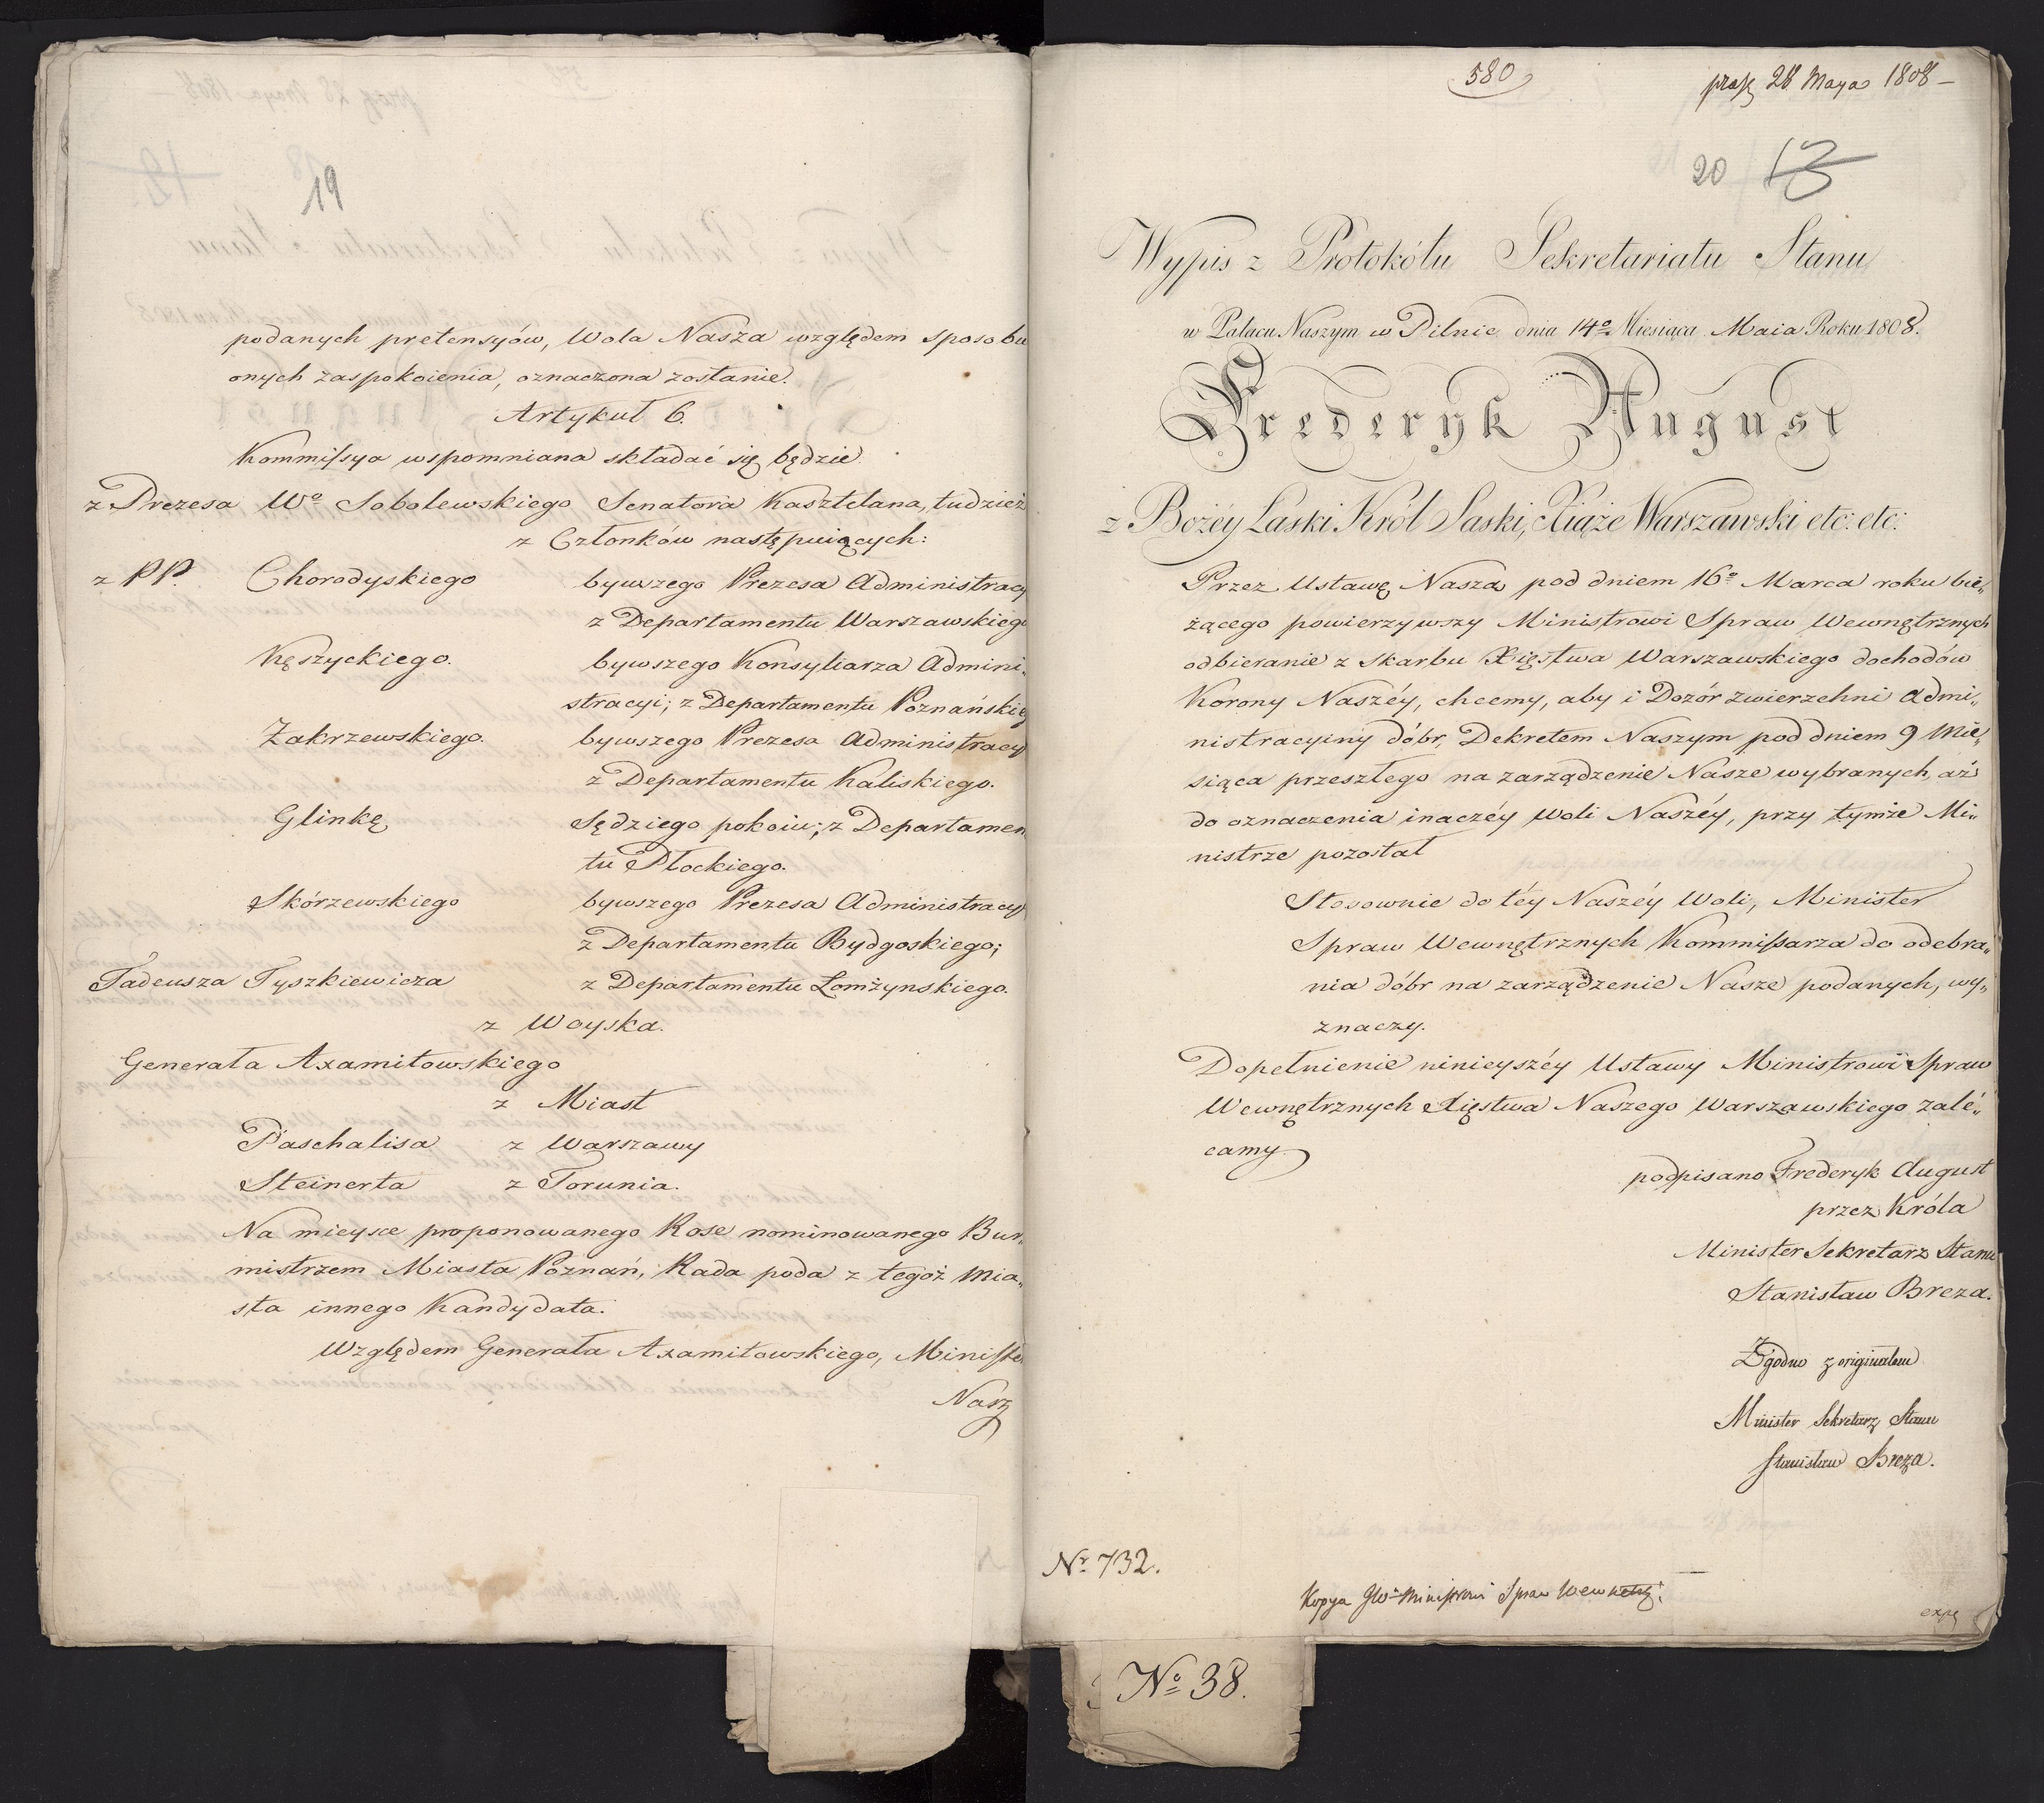 19
podanych pretensyów, Wola Nasza względem sposobu
onych zaspokoienia, oznaczona zostanie.
Artykuł 6.
Kommissya wspomniana składać się będzie
z Prezesa Wo Sobolewskiego Senatora Kasztelana, tudzież
z Członków następuiących:
z PP. Chorodyskiego bywszego Prezesa Administracy
z Departamentu Warszawskiego
Kęszyckiego. bywszego Konsyliarza Admini„
stracyi; z Departamentu Poznańskieg
Zakrzewskiego. bywszego Prezesa Administracy
z Departamentu Kaliskiego.
Glinkę Sędziego pokoiu; z Departamen
tu Płockiego.
Skórzewskiego bywszego Prezesa Administracy
z Departamentu Bydgoskiego;
Tadeusza Tyszkiewicza z Departamentu Łomżynskiego.
z Woyska.
Generała Axamitowskiego
z Miast
Paschalisa z Warszawy
Steinerta z Torunia.
Na mieysce proponowanego Rose nominowanego Bur„
mistrzem Miasta Poznań, Rada poda z tegoż Mia„
sta innego Kandydata.
Względem Generała Axamitowskiego, Ministe
Nasz
580
28 Maya 1808 –
20 13
Wypis z Protokółu Sekretariatu Stanu
w Pałacu Naszym w Pilnic dnia 14o Miesiąca Maia Roku 1808.
Frederyk August
z Bożéy Łaski Król Saski, Xiąże Warszawski etc: etc:
Przez Ustawę Naszą pod dniem 16o Marca roku bie„
żącego powierzywszy Ministrowi Spraw Wewnętrznych
odbieranie z Skarbu Xięstwa Warszawskiego dochodów
Korony Naszéy, chcemy, aby i Dozór zwierzchni Admi„
nistracyiny dóbr, Dekretem Naszym pod dniem 9 Mie„
siąca przeszłego na zarządzenie Nasze wybranych, aż
do oznaczenia inaczéy Woli Naszéy, przy tymże Mi„
nistrze pozostał
Stosownie do téy Naszéy Woli, Minister
Spraw Wewnętrznych Kommissarza do odebra„
nia dóbr na zarządzenie Nasze podanych, wy„
znaczy.
Dopełnienie ninieyszéy Ustawy Ministrowi Spraw
Wewnętrznych Xięstwa Naszego Warszawskiego zalé„
camy
podpisano Frederyk August
przez Króla
Minister Sekretarz Stanu
Stanisław Breza.
Zgodno z originałem
Minister Sekretarz Stanu
Stanisław Breza.
Nr 732.
Kopya Ministrowi Spraw Wewnętrz:
No 38.